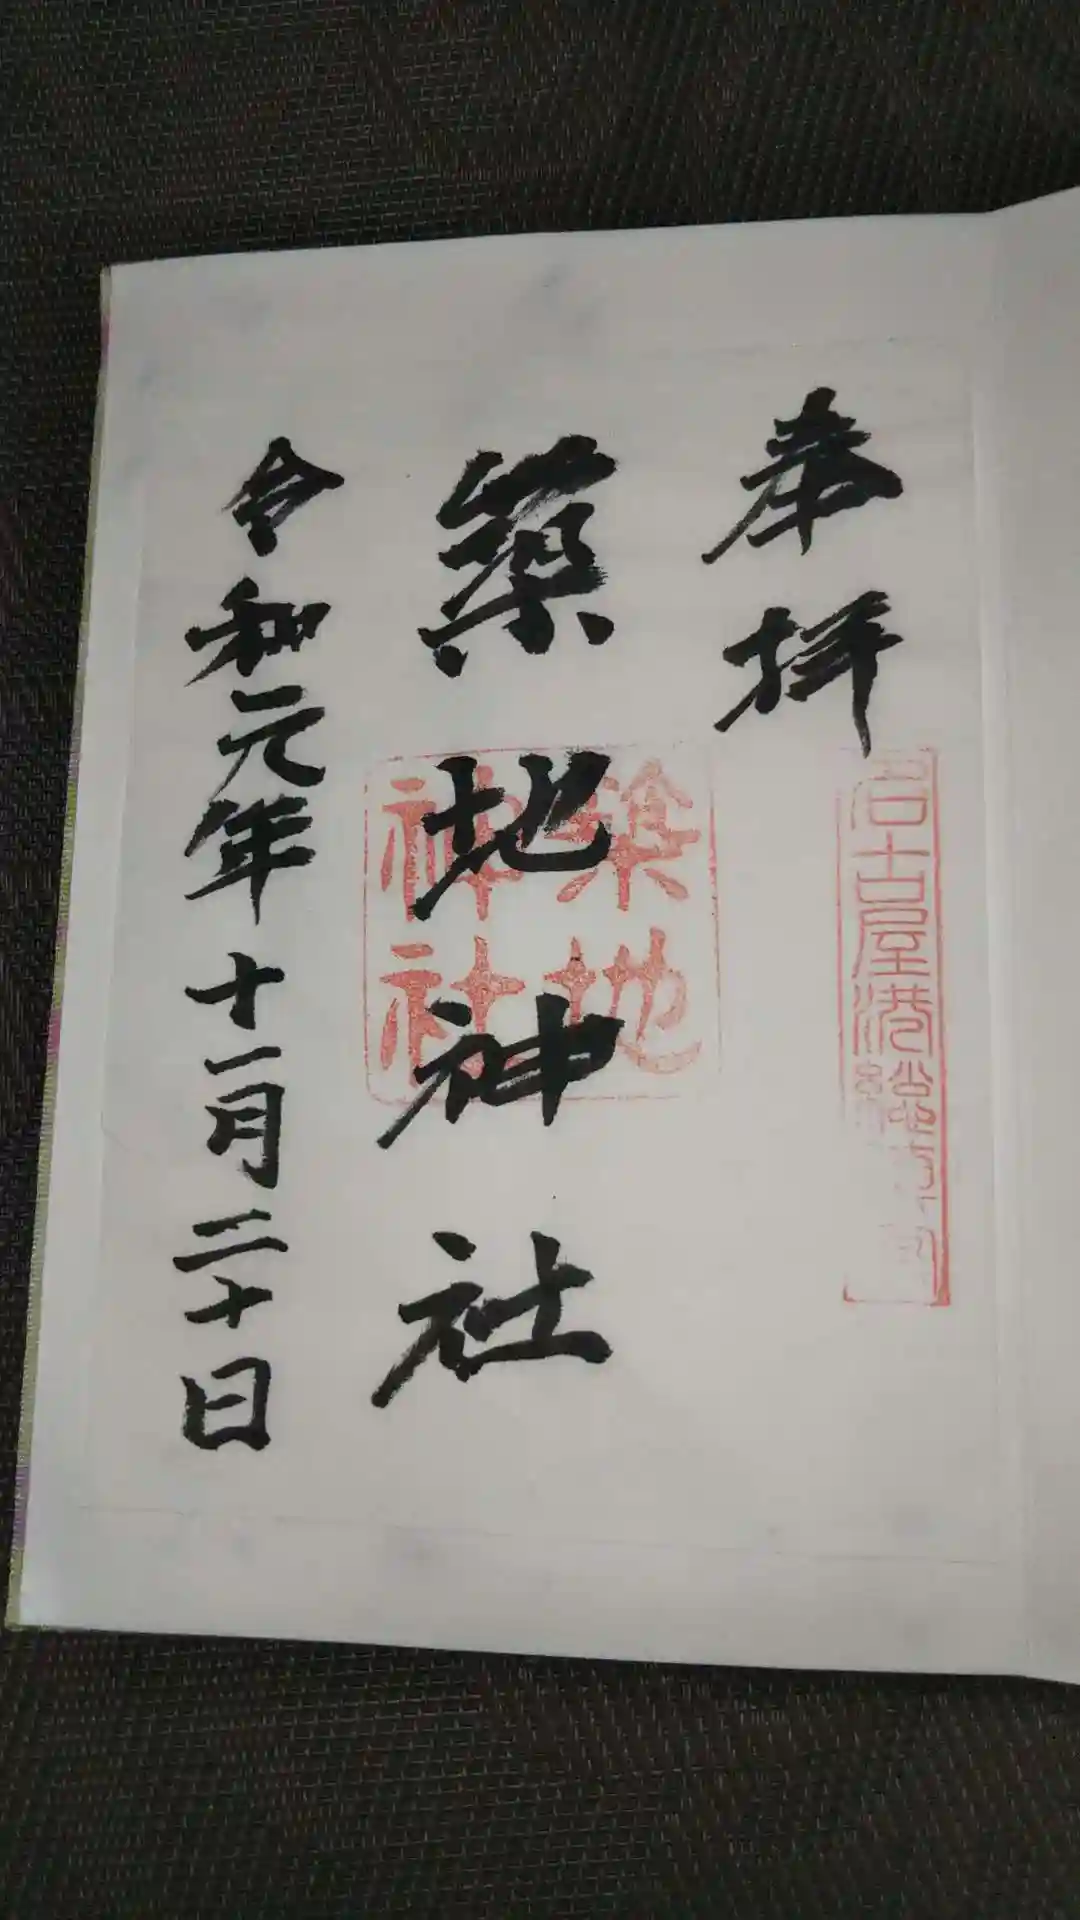 奉拝
名古屋港
築地神社
築地
神社
令和元年十一月二十日